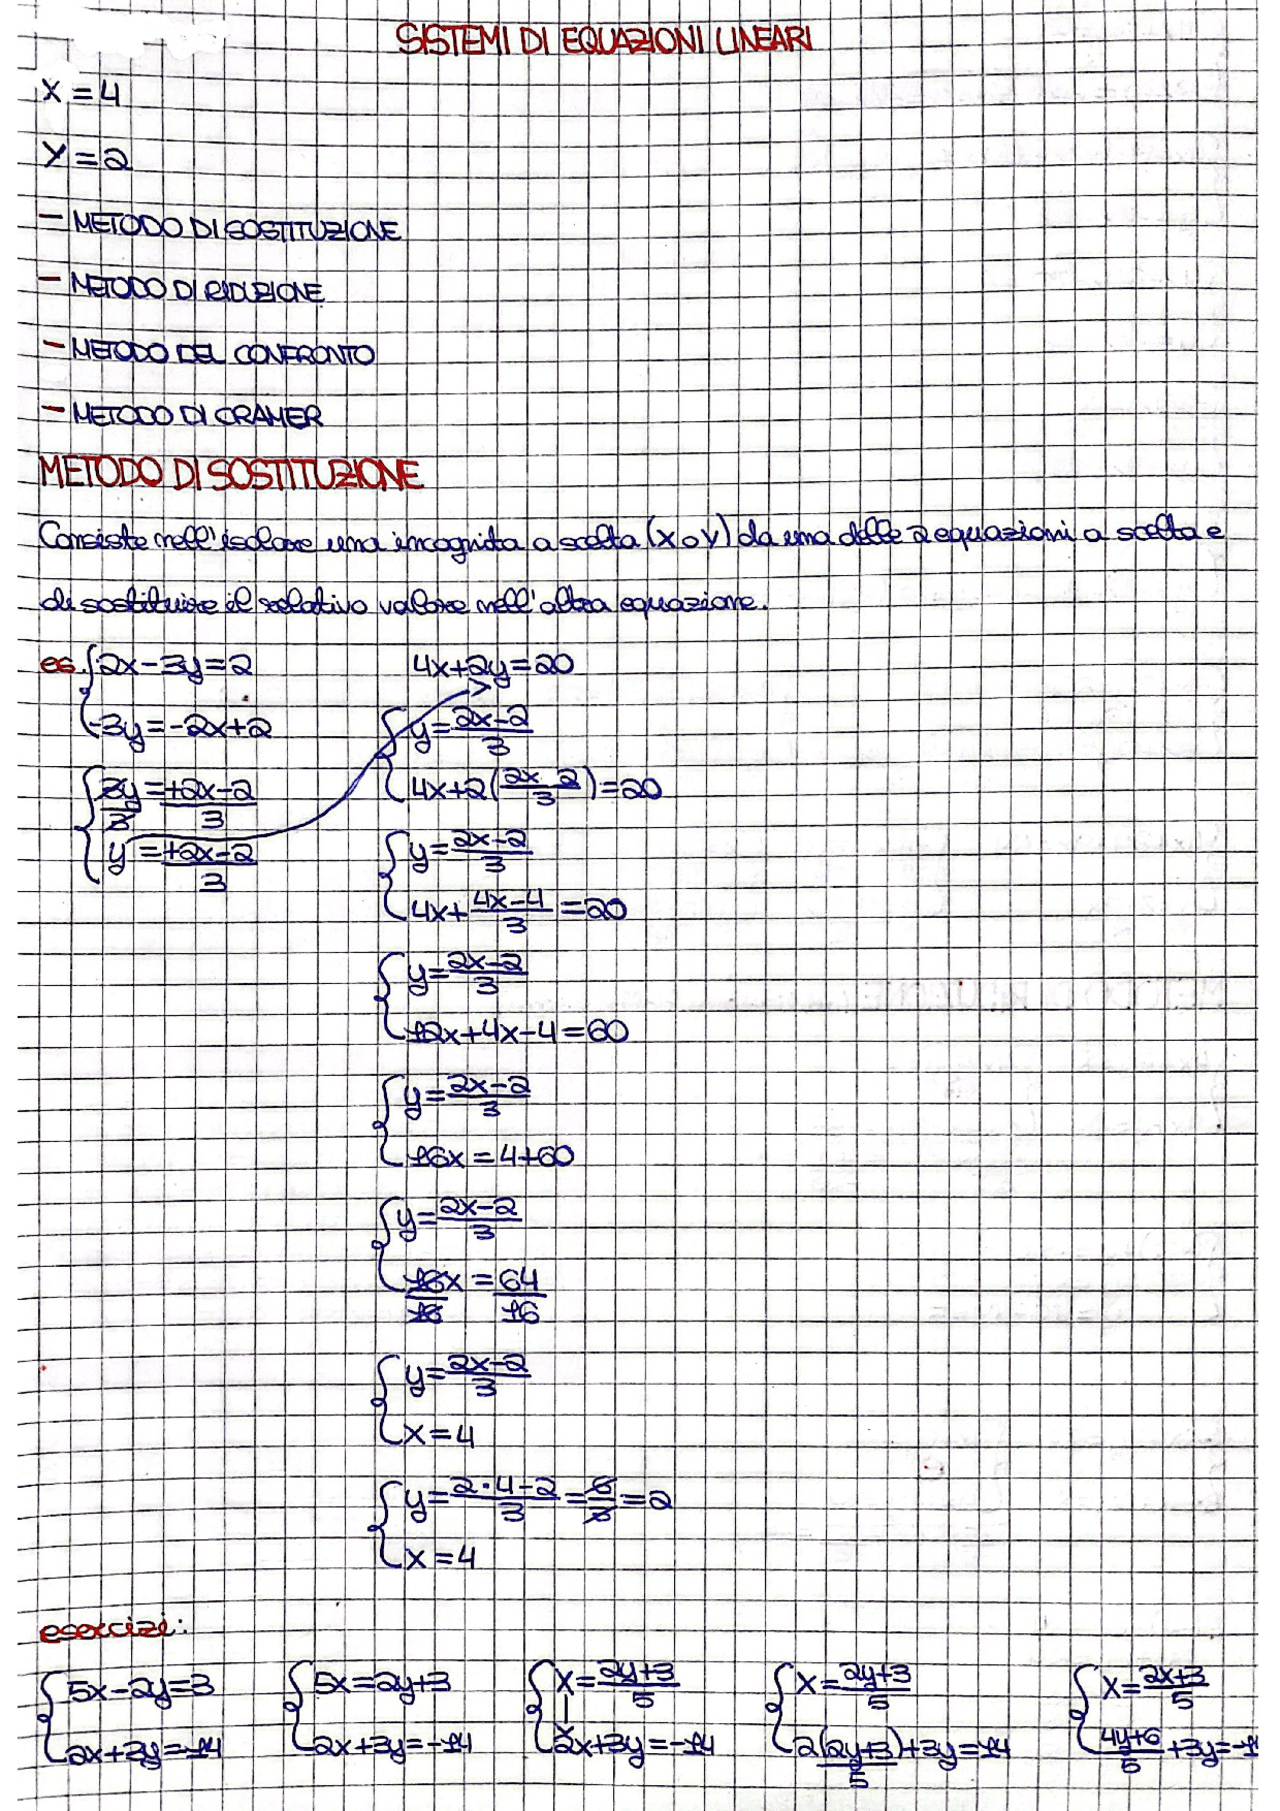 SISTEMI DI EQUAZIONI LINEARI
x = 4
y = 2
- METODO DI SOSTITUZIONE
- METODO DI RIDUZIONE
- METODO DEL CONFRONTO
- METODO DI CRAMER
METODO DI SOSTITUZIONE
Consiste nell'isolare una incognita a scelta (x o y) da una delle 2 equazioni a scelta e
di sostituire il relativo valore nell'altra equazione.
es. {2x-3y=2
-3y=-2x+2
{3y/3=+2x-2/3
y=+2x-2/3
4x+2y=20
{y=2x-2/3
4x+2(2x-2/3)=20
{y=2x-2/3
4x+4x-4/3=20
{y=2x-2/3
12x+4x-4=60
{y=2x-2/3
16x=4+60
{y=2x-2/3
16x/16=64/16
{y=2x-2/3
x=4
{y=2·4-2/3=6/3=2
x=4
esercizi:
{5x-2y=3
2x+3y=-14
{5x=2y+3
2x+3y=-14
{x=2y+3/5
2x+3y=-14
{x=2y+3/5
2(2y+3)/5+3y=14
{x=2x+3/5
4y+6/5+3y=-1